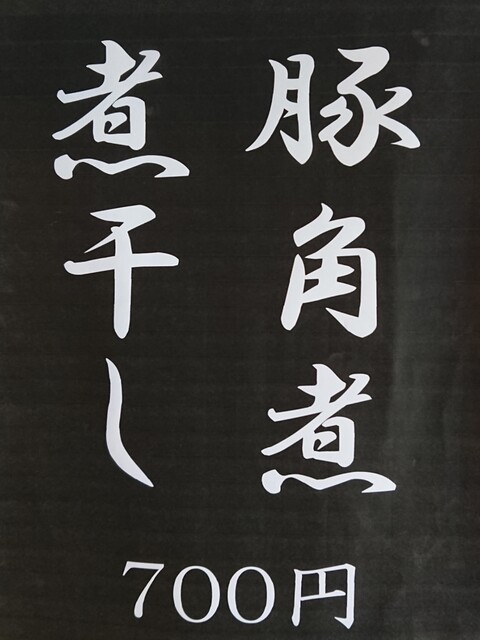 豚角煮
煮干し
700円